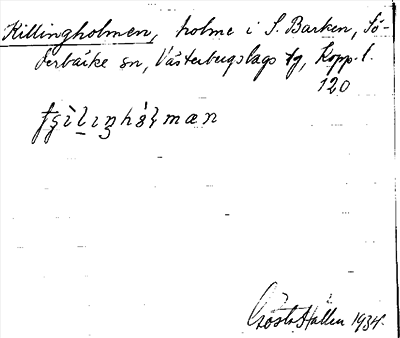 Killingholmen, holme i S. Barken, Sö-
derbärke sn, Västerbergslags tg, Kopp. l.
120
Gösta Hallén 1934.